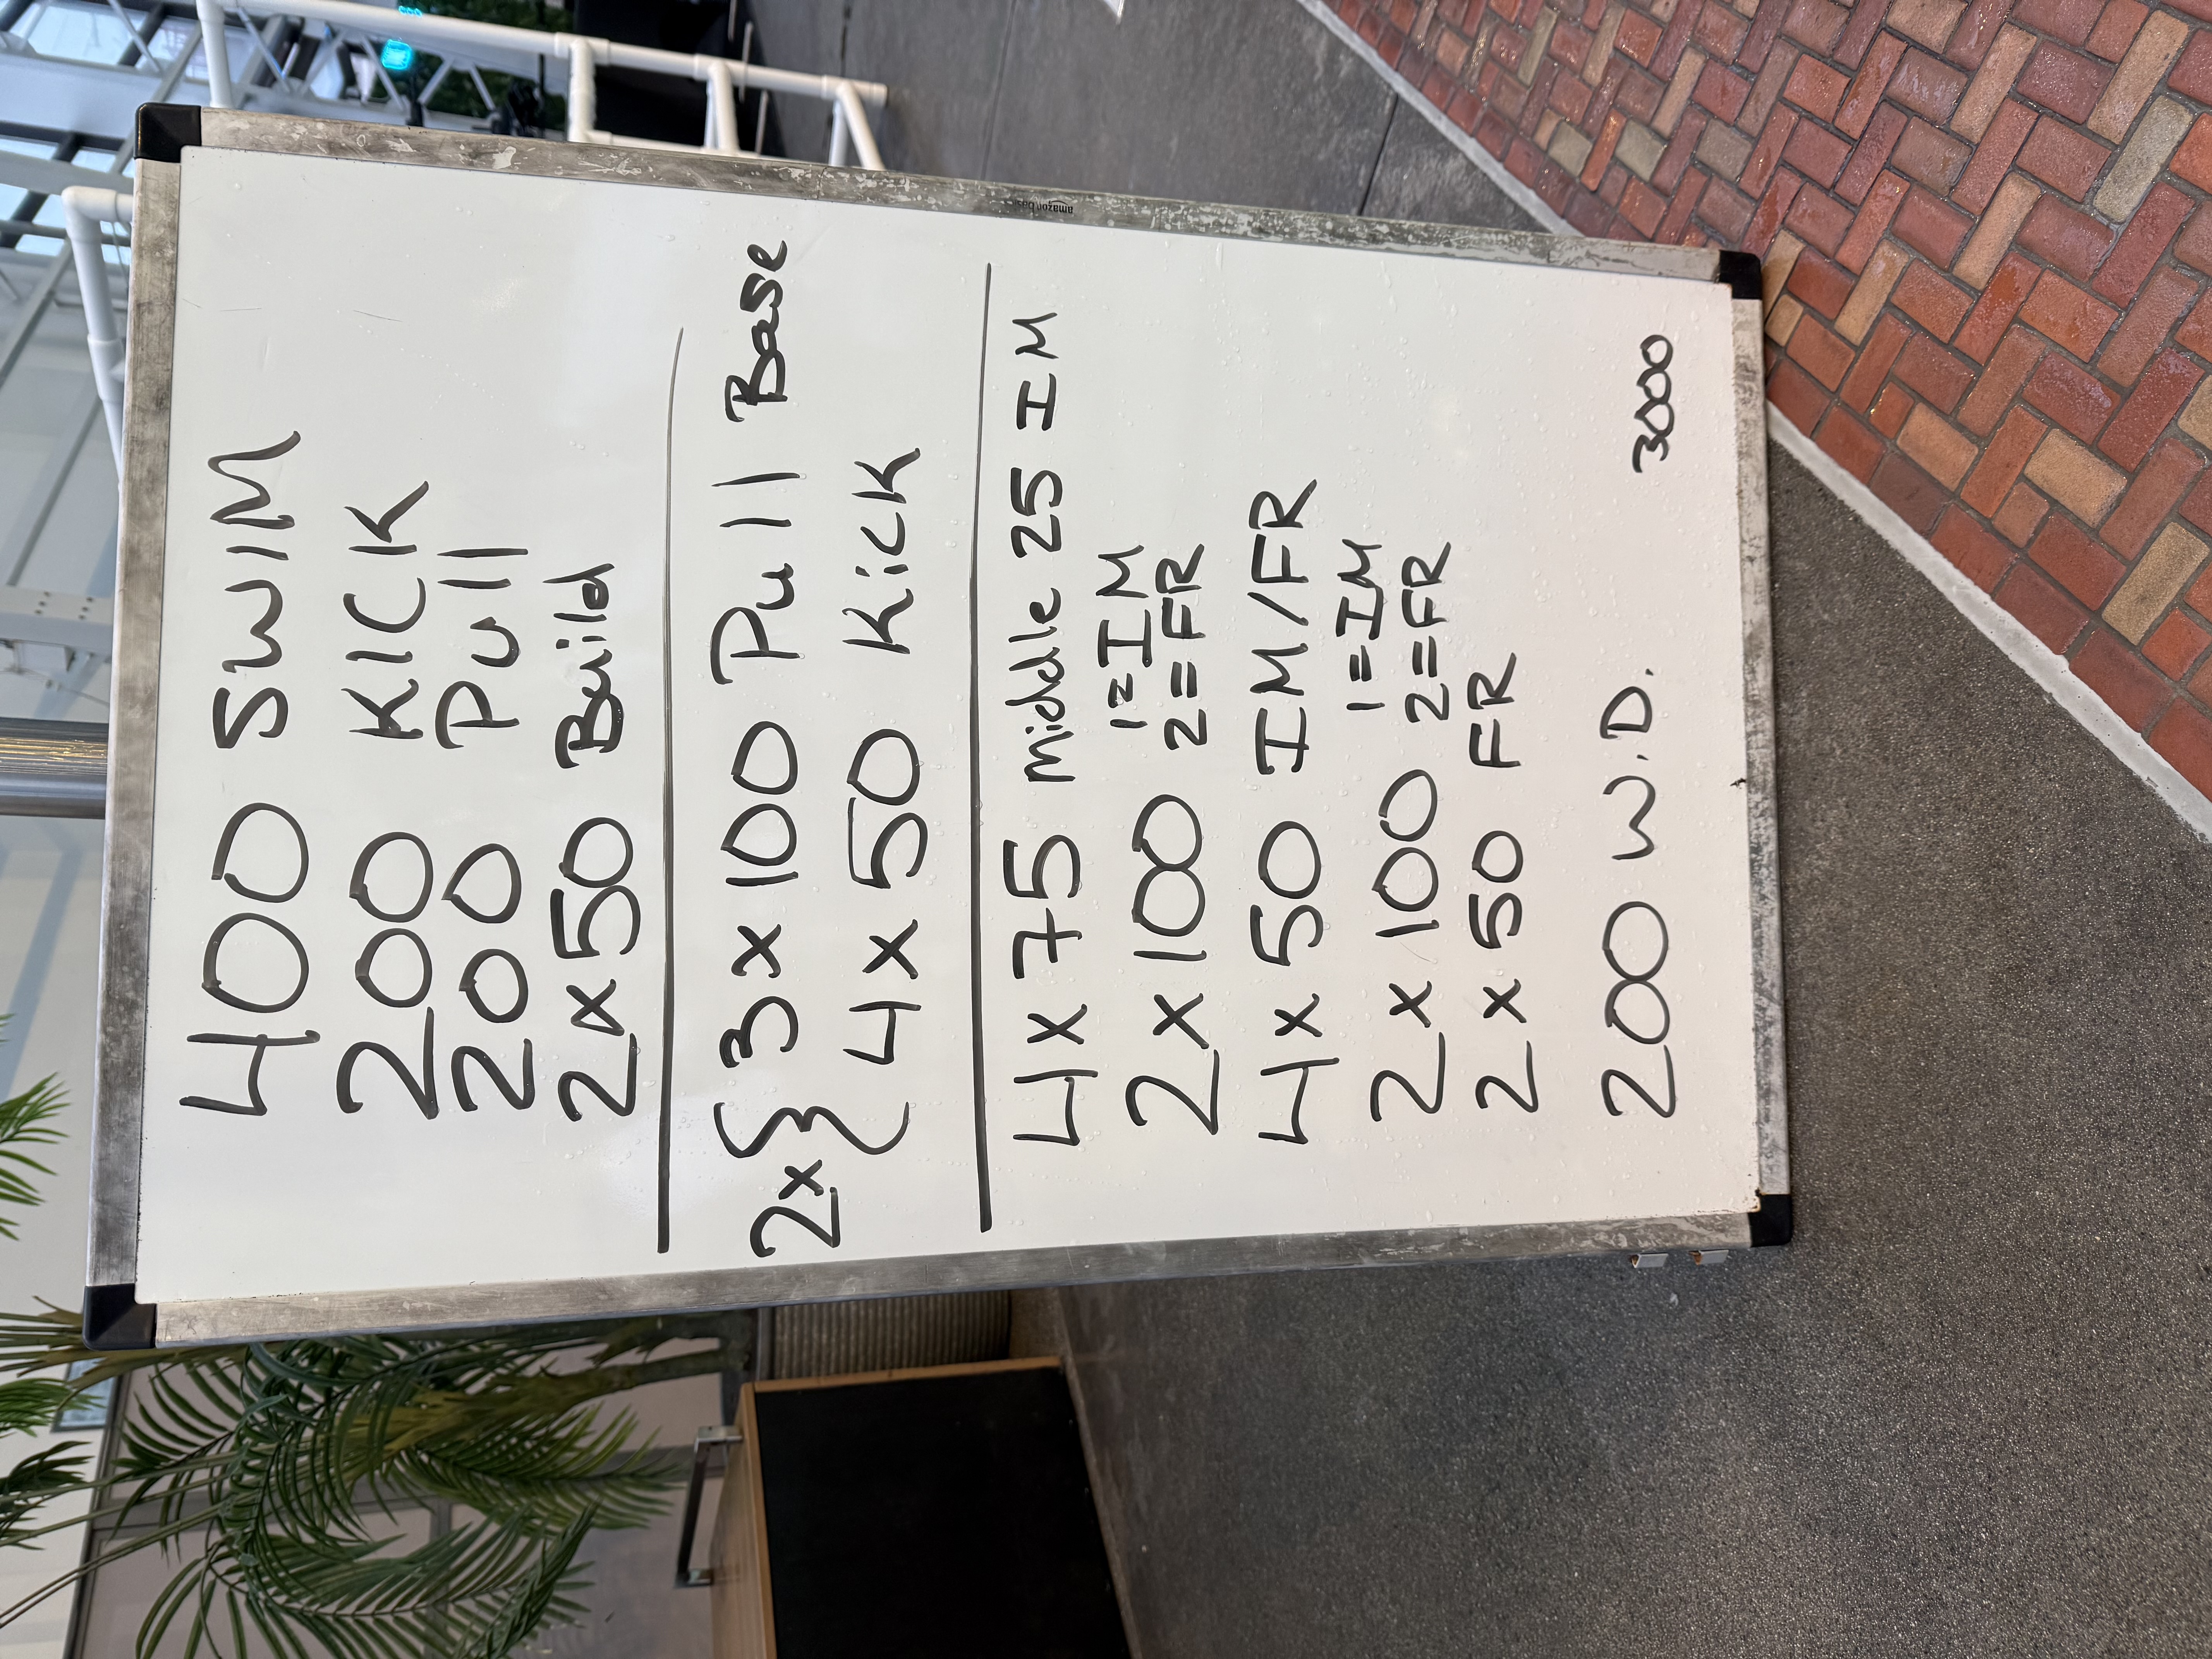 400 SWIM
200 KICK
200 Pull
2x50 Build
2x{ 3x100 Pull Base
4x50 Kick
4x75 Middle 25 IM
2x100 1=IM
2=FR
4x50 IM/FR
2x100 1=IM
2=FR
2x50 FR
200 W.D.
3000
amazon basics